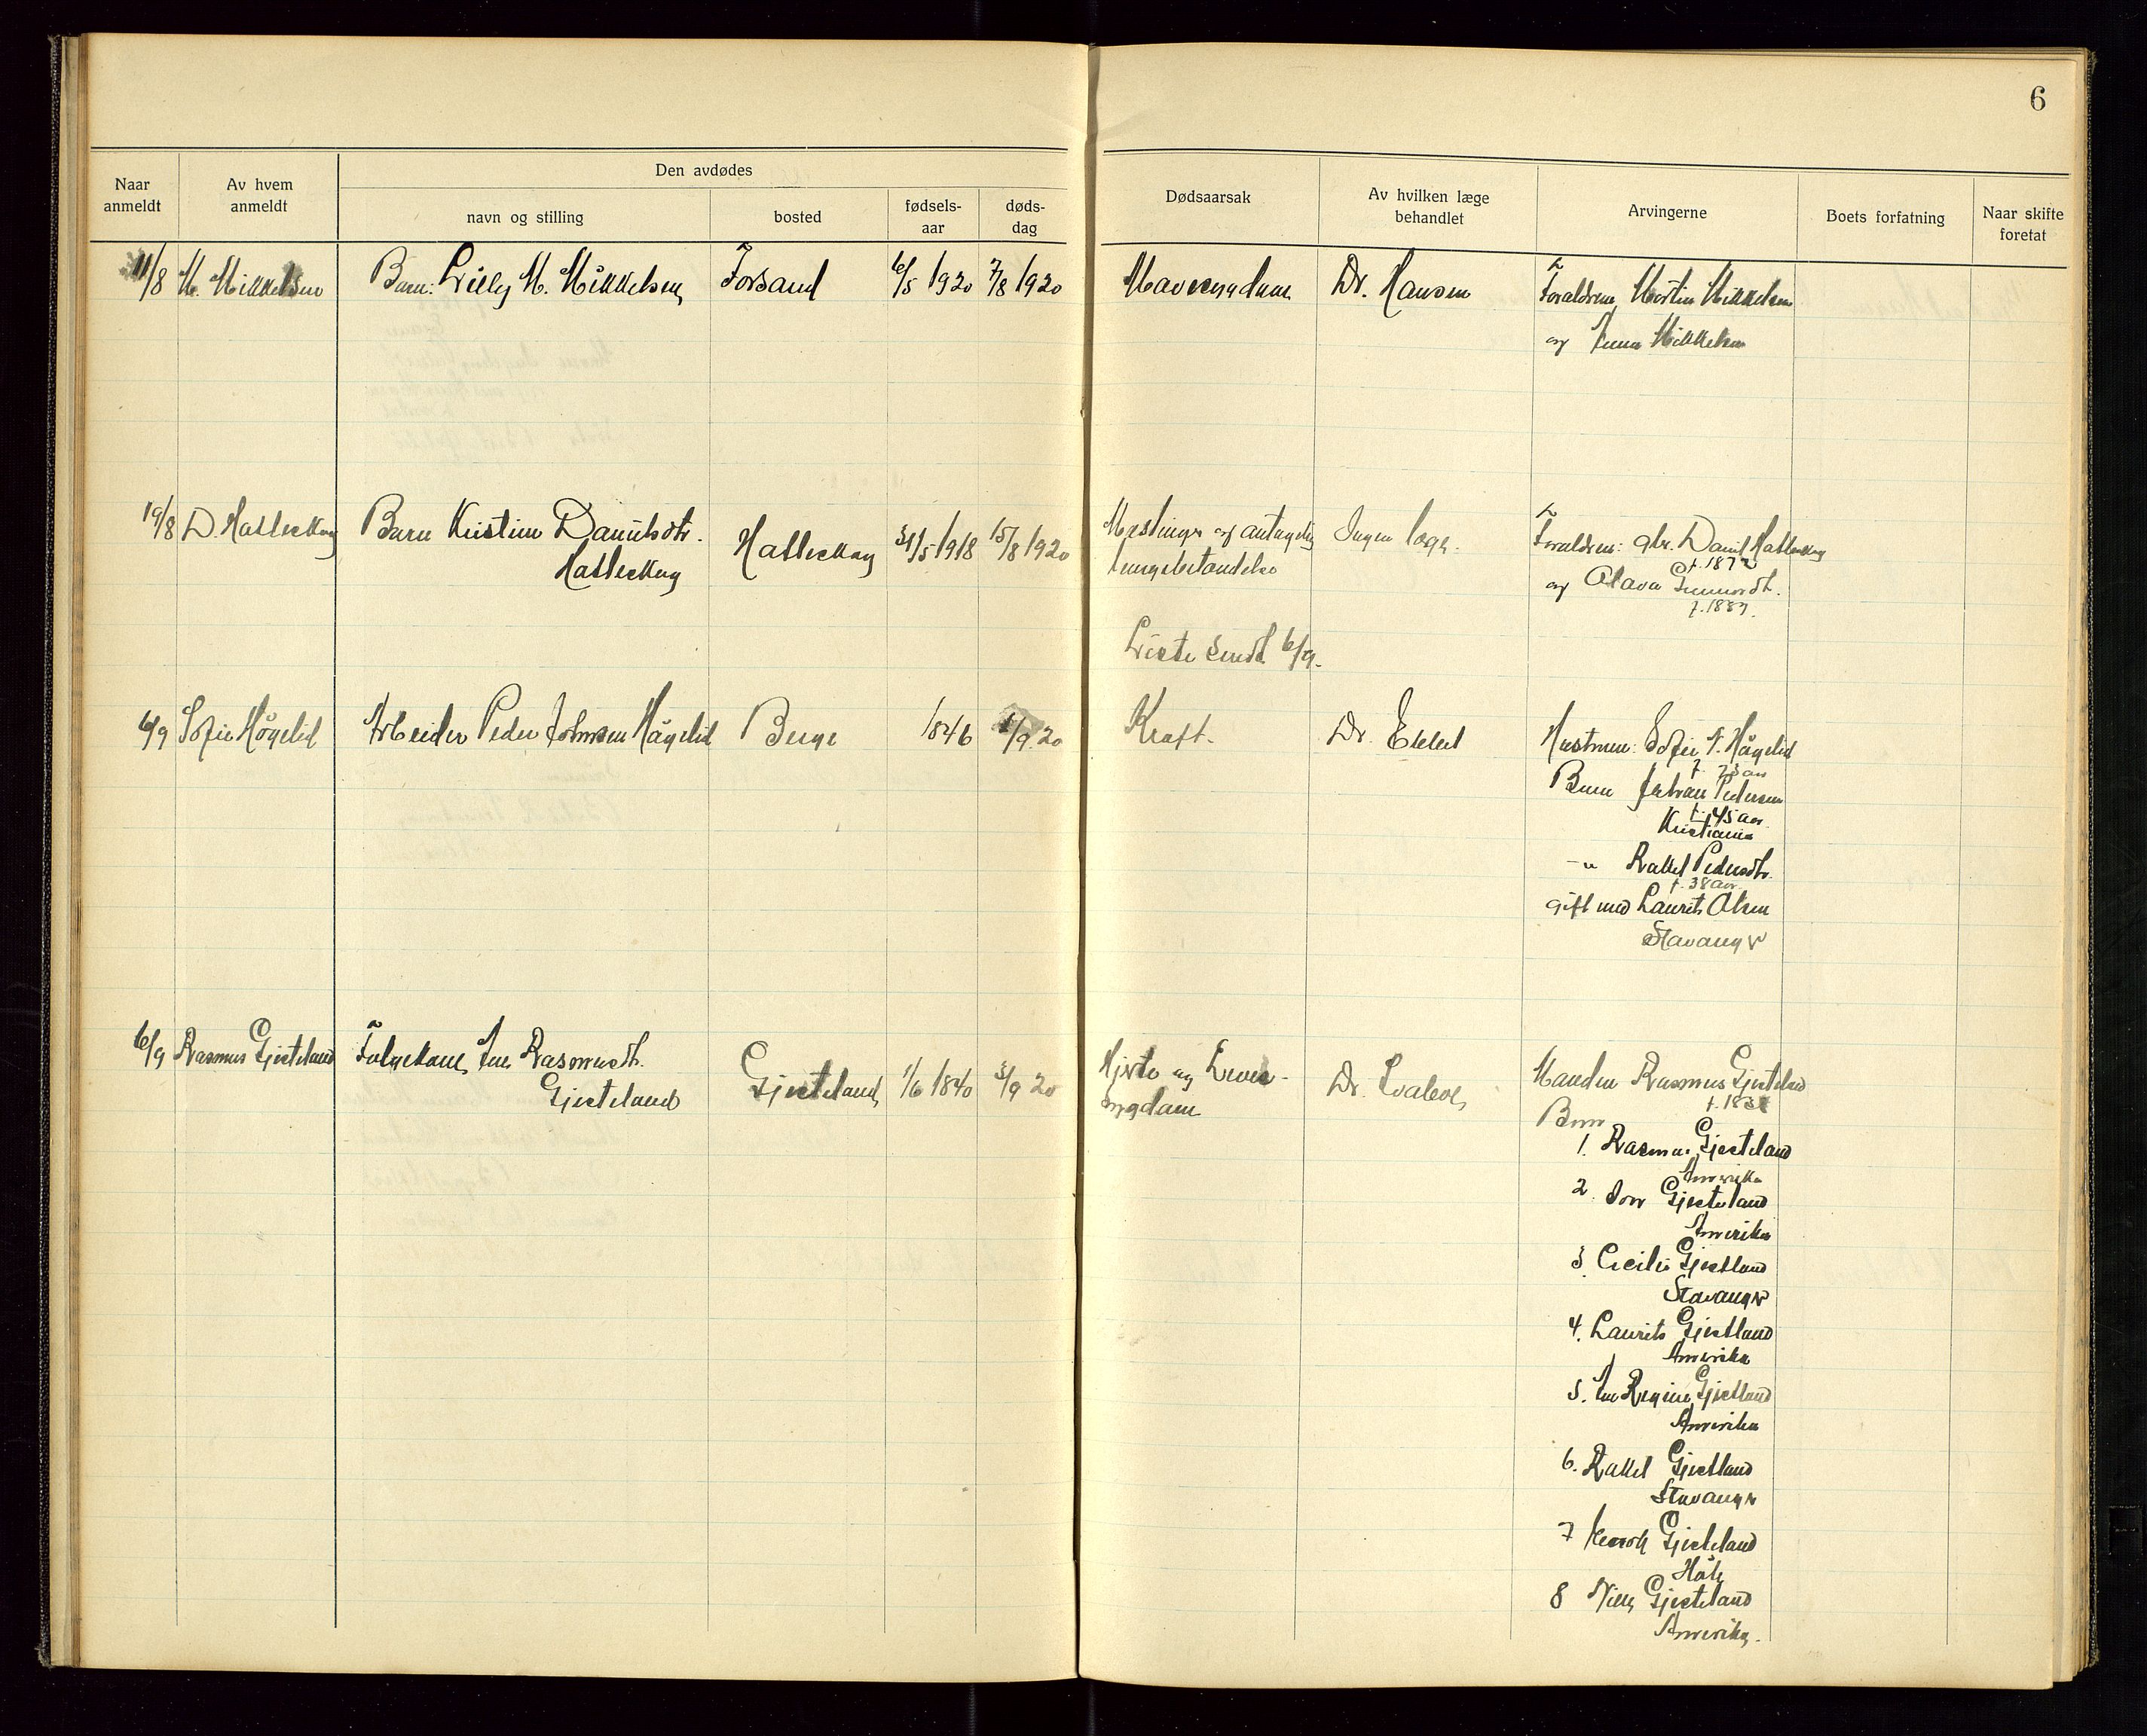 6
Naar anmeldt
Av hvem anmeldt
Den avdødes
navn og stilling
bosted
fødsels-aar
døds-dag
Dødsaarsak
Av hvilken læge behandlet
Arvingerne
Boets forfatning
Naar skifte foretat
11/8 M. Mikkelsen Barn: Willy M. Mikkelsen Forsand 6/5 1920 7/8 1920 Mavesygdom Dr. Hansen Forældrene Martin Mikkelsen
og Anna Mikkelsen
19/8 D. Hatleskog Barn Kristine Danielsdtr. Hatleskog 31/5 1918 15/8 1920 Mæslinger og antagelig Ingen læge. Forældrene: gbr. Daniel Hatleskog
Hatleskog lungebetændelse f. 1872
og Olava Gunnarsdt.
f. 1889.
Liste sendt 6/9.
6/9 Sofie Høgelid Arbeider Peder Johnsen Høgelid Berge 1846 1/9 20 Kræft. Dr. Eckel Hustruen: Sofie N. Høgelid
f. 73 aar
Barn Johan Pedersen
f. 45 aar
Kristiania
-"- Rakel Pedersdtr.
f. 38 aar.
gift med Laurits Olsen
Stavanger
6/9 Rasmus Gjesteland Folgekone Ane Rasmusdt. Gjesteland 1/6 1840 3/9 20 Hjerte og Lever- Dr. Manden Rasmus Gjesteland
Gjesteland sygdom
Barn
1. Rasmus Gjesteland
Amerika
2. Gjesteland
Amerika
3. Cecilie Gjestland
Stavanger
4. Laurits Gjestland
Amerika
5. Ane Regine Gjestland
Amerika
6. Rakel Gjestland
Stavanger
7 Gjesteland
Høle
8 Nills Gjesteland
Amerika.